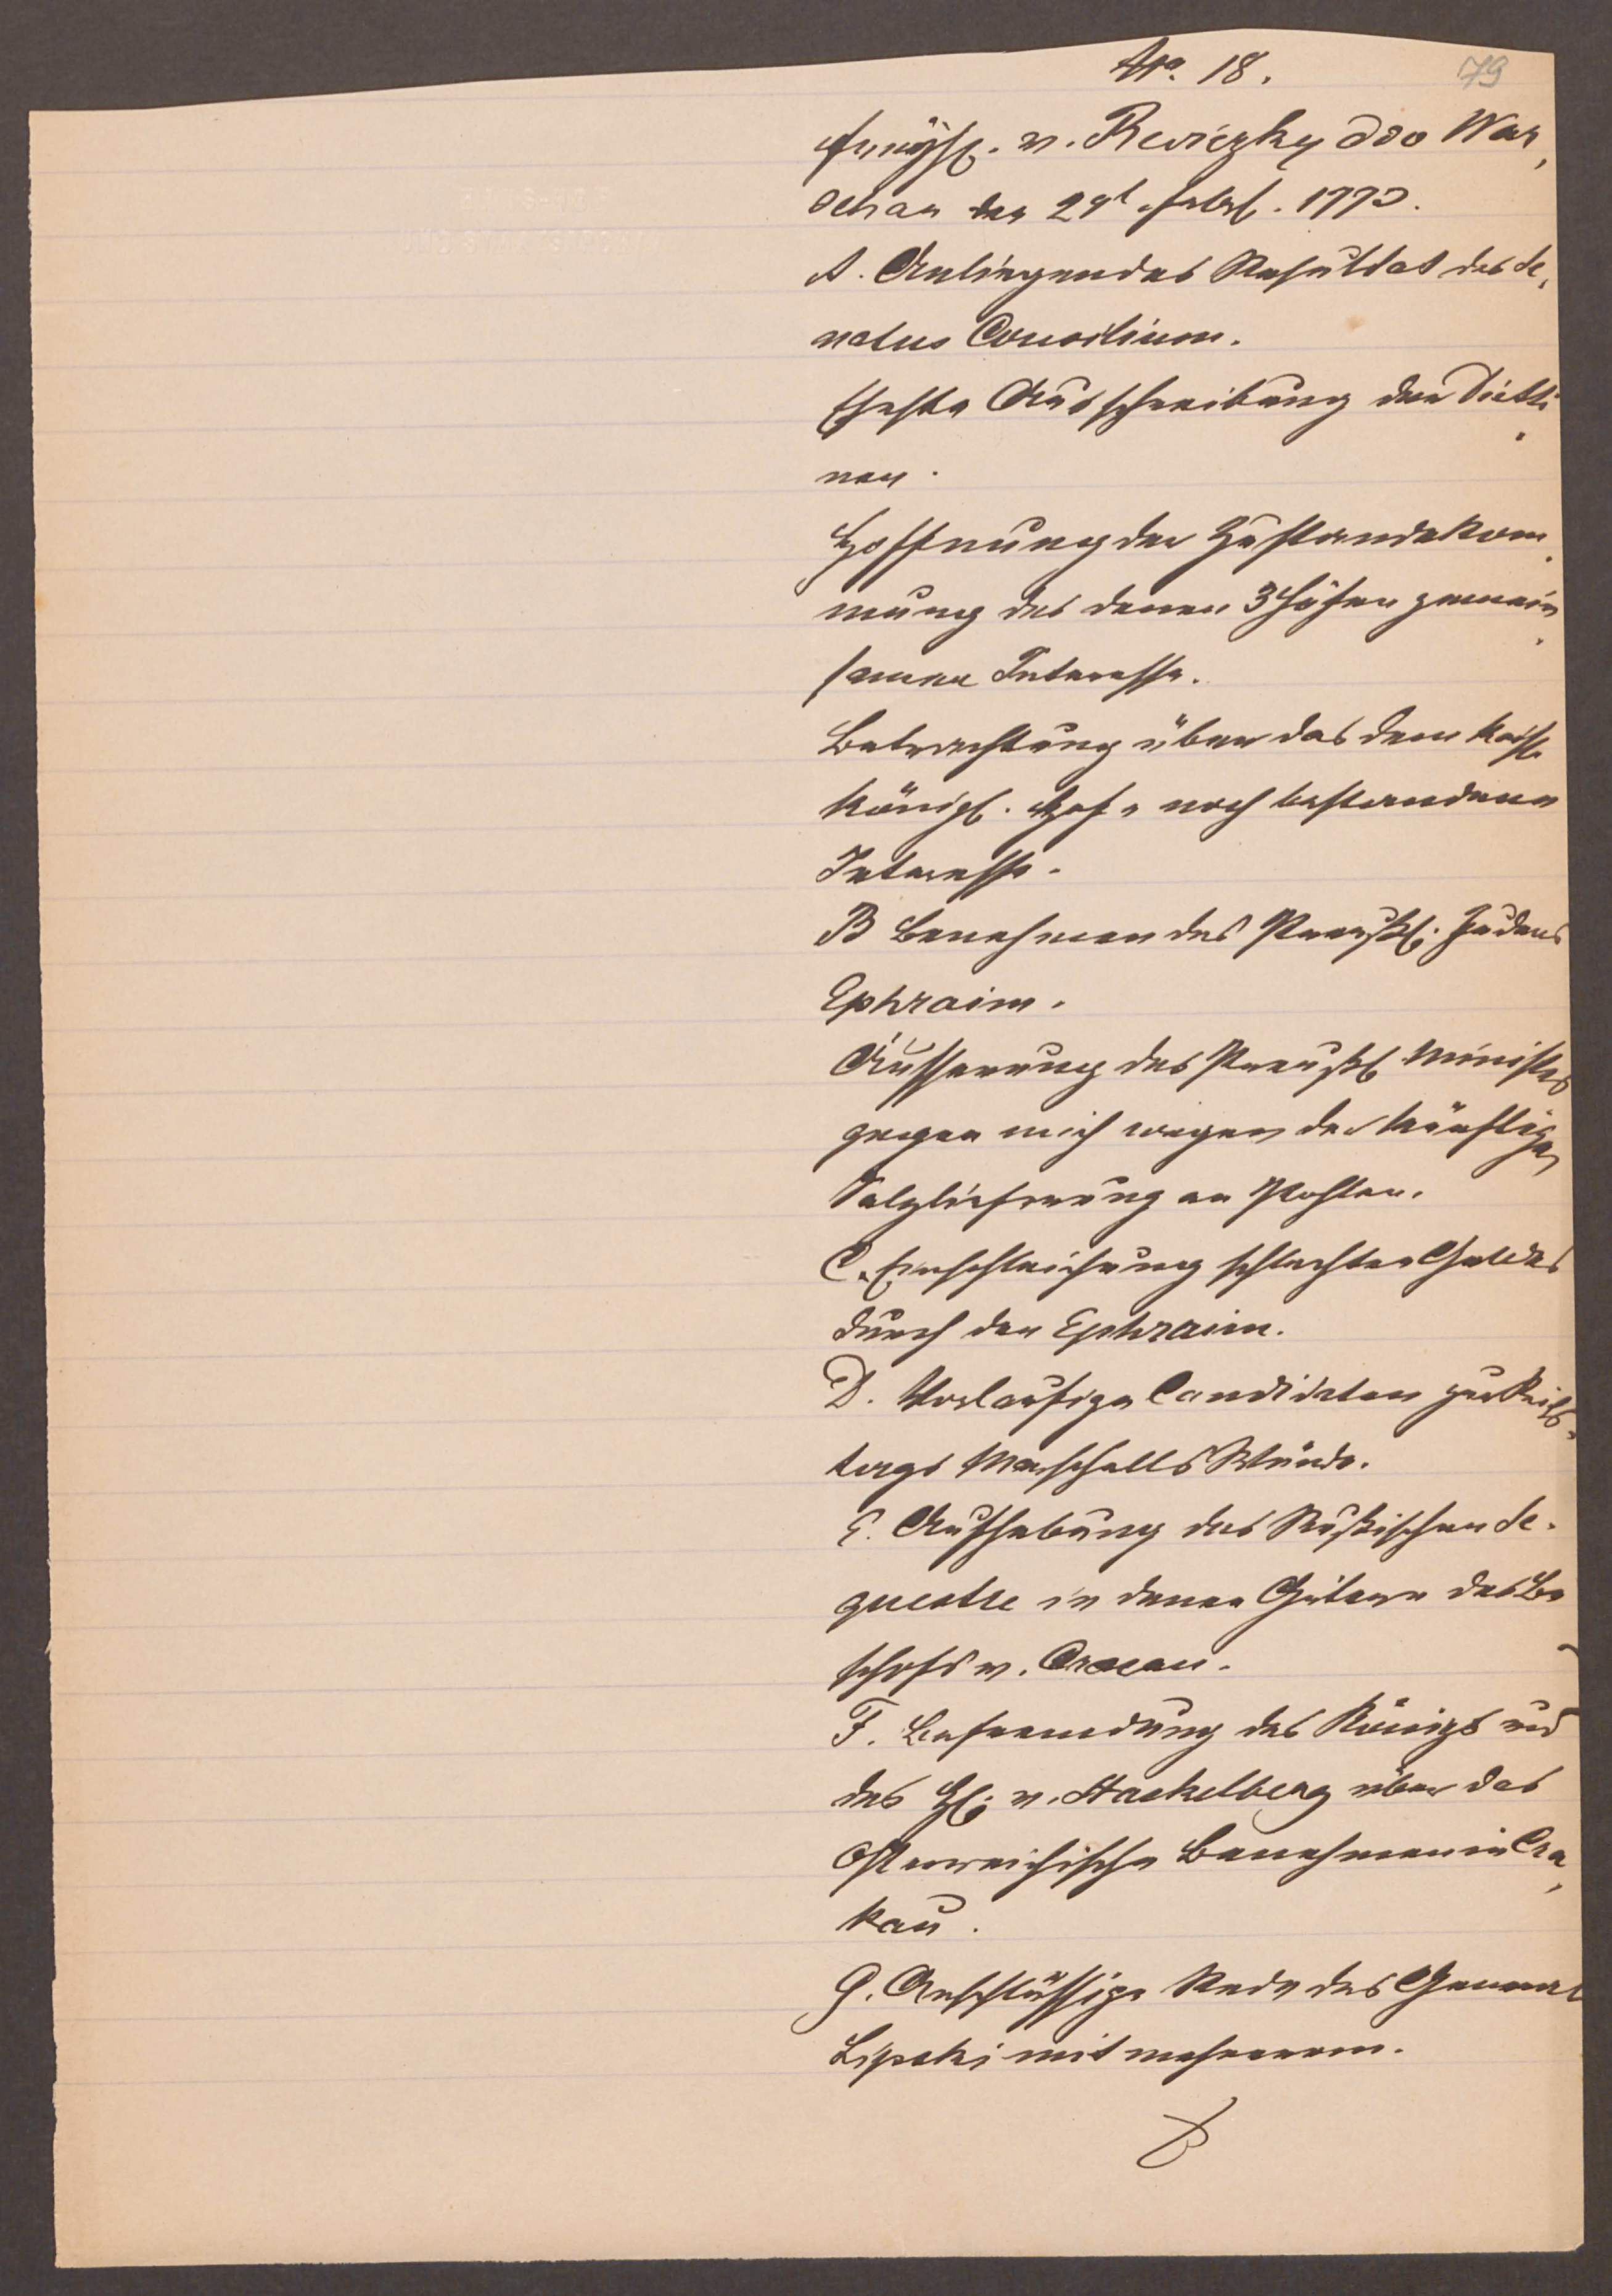 No. 18.
79
Freyh. v. Reviczky ddo War,
schau den 24t Febr. 1773.
A. Anliegendes Resultat des Se,
natus Consilium.
Eheste Ausschreibung der Dieti
nen.
Hoffnung der Zustandekom
mung des denen 3 Höfen gemein
samen Interesse.
Betrachtung über das dem Kaiserl.
Königl. Hofe noch bestandene
Interesse.
B Benehmen des Preußl. Judens
Ephraim.
Äusserung des Preußl. Ministers
gegen mich wegen der künftigen
Salzlieferung an Pohlen.
C. Einschleichung schlechten Geldes
durch den Ephraim.
D. Vorläufige Candidaten zur Reichs,
tags Marschalls Würde.
E. Aufhebung des Rußischen Se.
questre in denen Gütern des Bi
schofs v. Cracau.
F. Befremdung des Königs und
des H. v. Stackelberg über das
Österreichische Benehmen in Cra,
kau.
G. Anstössige Rede des General
Lipski mit mehrerem.